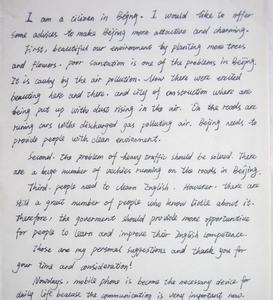 I am a citizen in Beijing. I would like to offer
some advices to make Beijing more attractive and charming.
First, beautiful our environment by planting more trees
and flowers. poor sanitation is one of the problems in Beijing.
It is caused by the air pollution. Now there were erected
beauting here and there. and city of constraction where are
being put up with dust rising in the air. On the roads are
runing cars with discharged gas polluting air. Beijing needs to
provide people with clean enviroment.
Second. the problem of heavy traffic should be solved. There
are a huge number of vechies running on the roads in Beijing.
Third. people need to learn English. However. there are
still a great number of people who know little about it.
therefore, the government should provide more opportunities
for people to learn and improve their English competence.
Those are my personal suggestions and thank you for
your time and consideration!
Nowdays, mobile phone is become the necessary device for
daily life because the communication is very important now.